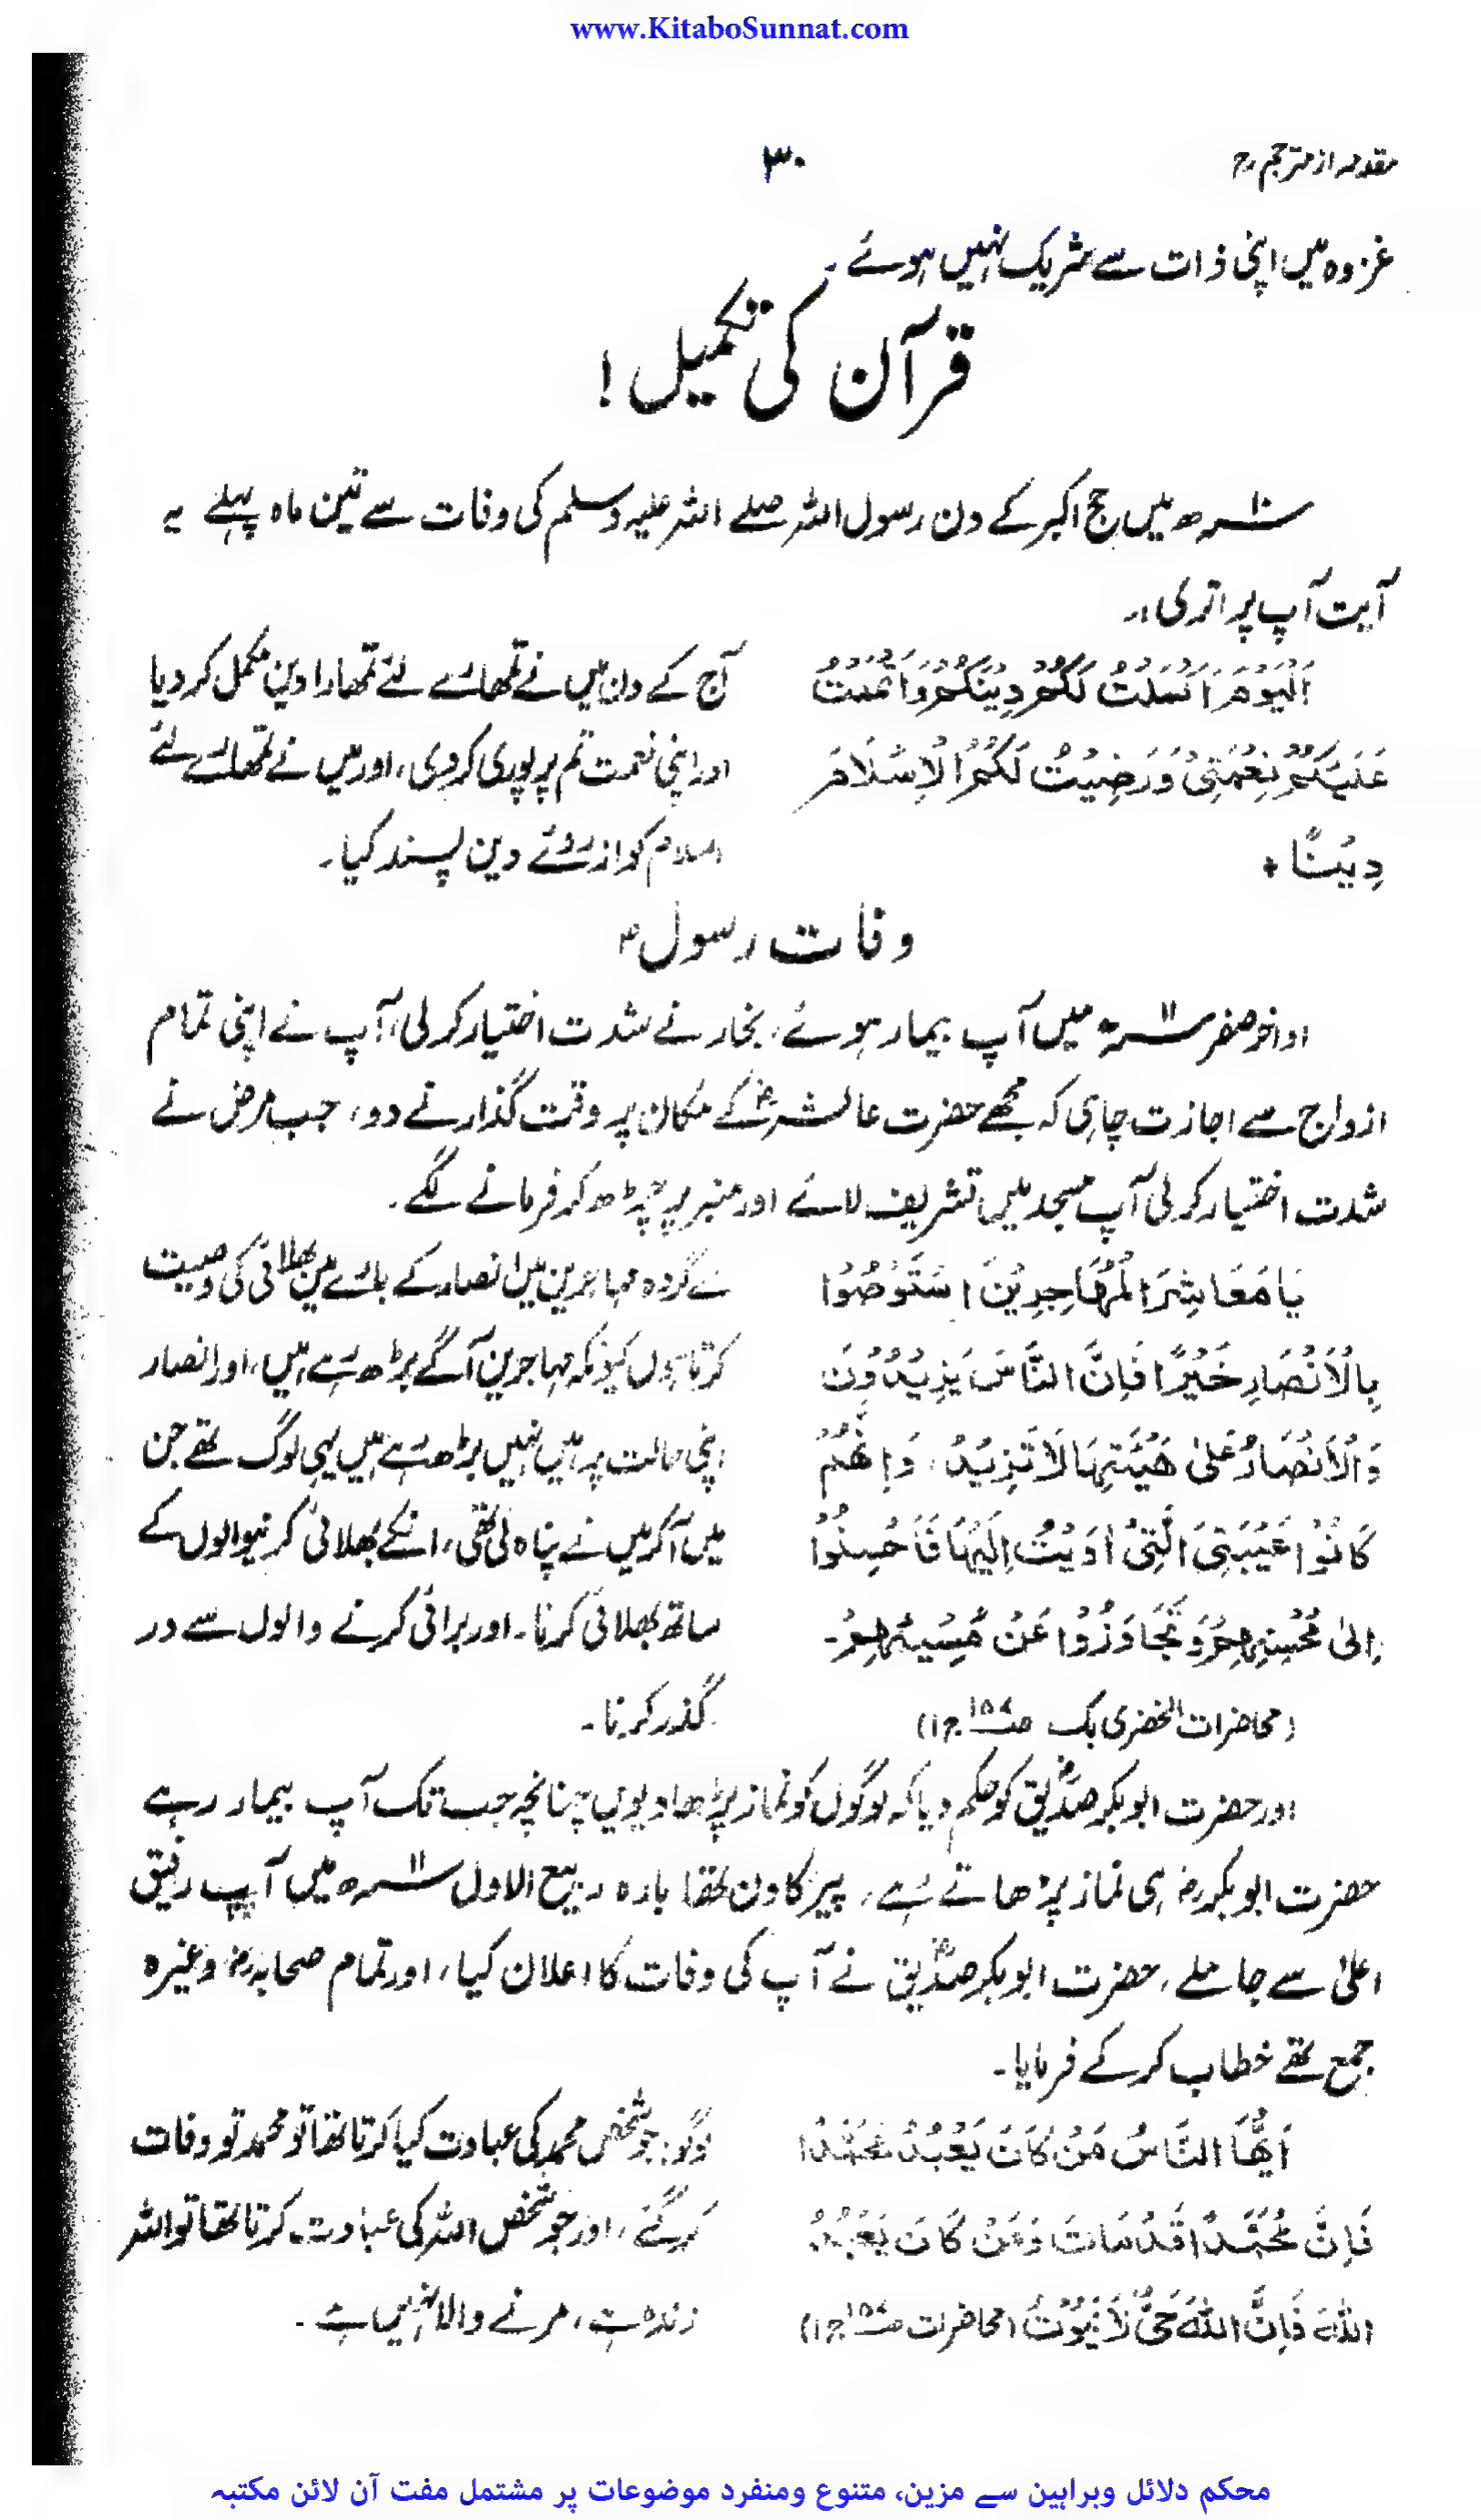 www.KitaboSunnat.com
مقدمہ از مترجم رح
۳۰
غزوہ میں اپنی ذات سے شریک نہیں ہوئے۔
قرآن کی تکمیل!
۱۰ سنہ ھ میں حج اکبر کے دن رسول اللہ صلے اللہ علیہ وسلم کی وفات سے تین ماہ پہلے یہ
آیت آپ پر اتری:۔
اَلْیَوْمَ اَکْمَلْتُ لَکُمْ دِیْنَکُمْ وَاَتْمَمْتُ
عَلَیْکُمْ نِعْمَتِیْ وَرَضِیْتُ لَکُمُ الْاِسْلَامَ
دِیْنًا +
آج کے دن میں نے تمھارے لئے تمھارا دین مکمل کر دیا
اور اپنی نعمت تم پر پوری کردی، اور میں نے تمھارے لئے
اسلام کو از روئے دین پسند کیا۔
وفات رسول ؐ
اواخر صفر ۱۱ سنہ ھ میں آپ بیمار ہوئے، بخار نے شدت اختیار کرلی، آپ نے اپنی تمام
ازواج سے اجازت چاہی کہ مجھے حضرت عائشہ رضؓ کے مکان پر وقت گذارنے دو، جب مرض نے
شدت اختیار کرلی آپ مسجد میں تشریف لائے اور منبر پر چڑھ کر فرمانے لگے۔
یَا مَعَاشِرَ الْمُهَاجِرِیْنَ اسْتَوْصُوْا
بِالْاَنْصَارِ خَیْرًا فَاِنَّ النَّاسَ یَزِیْدُوْنَ
وَالْاَنْصَارُ عَلیٰ هَیْئَتِهَا لَا تَزِیْدُ، وَاِنَّهُمْ
کَانُوْا عَیْبَتِیَ الَّتِیْ اٰوَیْتُ اِلَیْهَا فَاَحْسِنُوْا
اِلیٰ مُحْسِنِهِمْ وَتَجَاوَزُوْا عَنْ مُسِیْئِهِمْ۔
(محاضرات الخضری بک ج۱)
اے گروہ مہاجرین میں انصار کے بارے میں بھلائی کی وصیت
کرتا ہوں کیونکہ مہاجرین آگے بڑھ رہے ہیں، اور انصار
اپنی حالت پر ہیں نہیں بڑھ رہے ہیں یہی لوگ تھے جن
میں آکر میں نے پناہ لی تھی، انکے بھلائی کرنیوالوں کے
ساتھ بھلائی کرنا۔ اور برائی کرنے والوں سے در
گذر کرنا۔
اور حضرت ابوبکر صدیقؓ کو حکم دیا کہ لوگوں کو نماز پڑھا دیویں چنانچہ جب تک آپ بیمار رہے
حضرت ابوبکر رض ہی نماز پڑھاتے رہے، پیر کا دن تھا بارہ ربیع الاول ۱۱ سنہ ھ میں آپ رفیق
اعلیٰ سے جا ملے، حضرت ابوبکر صدیقؓ نے آپ کی وفات کا اعلان کیا، اور تمام صحابہ رض وغیرہ
جمع تھے خطاب کرکے فرمایا۔
اَیُّهَا النَّاسُ مَنْ کَانَ یَعْبُدُ مُحَمَّدًا
فَاِنَّ مُحَمَّدًا قَدْ مَاتَ وَمَنْ کَانَ یَعْبُدُ
اللّٰهَ فَاِنَّ اللّٰهَ حَیٌّ لَا یَمُوْتُ (محاضرات ج۱)
لوگو! جو شخص محمد کی عبادت کیا کرتا تھا تو محمد تو وفات
کر گئے، اور جو شخص اللہ کی عبادت کرتا تھا تو اللہ
زندہ ہے، مرنے والا نہیں ہے۔
محکم دلائل وبراہین سے مزین، متنوع ومنفرد موضوعات پر مشتمل مفت آن لائن مکتبہ